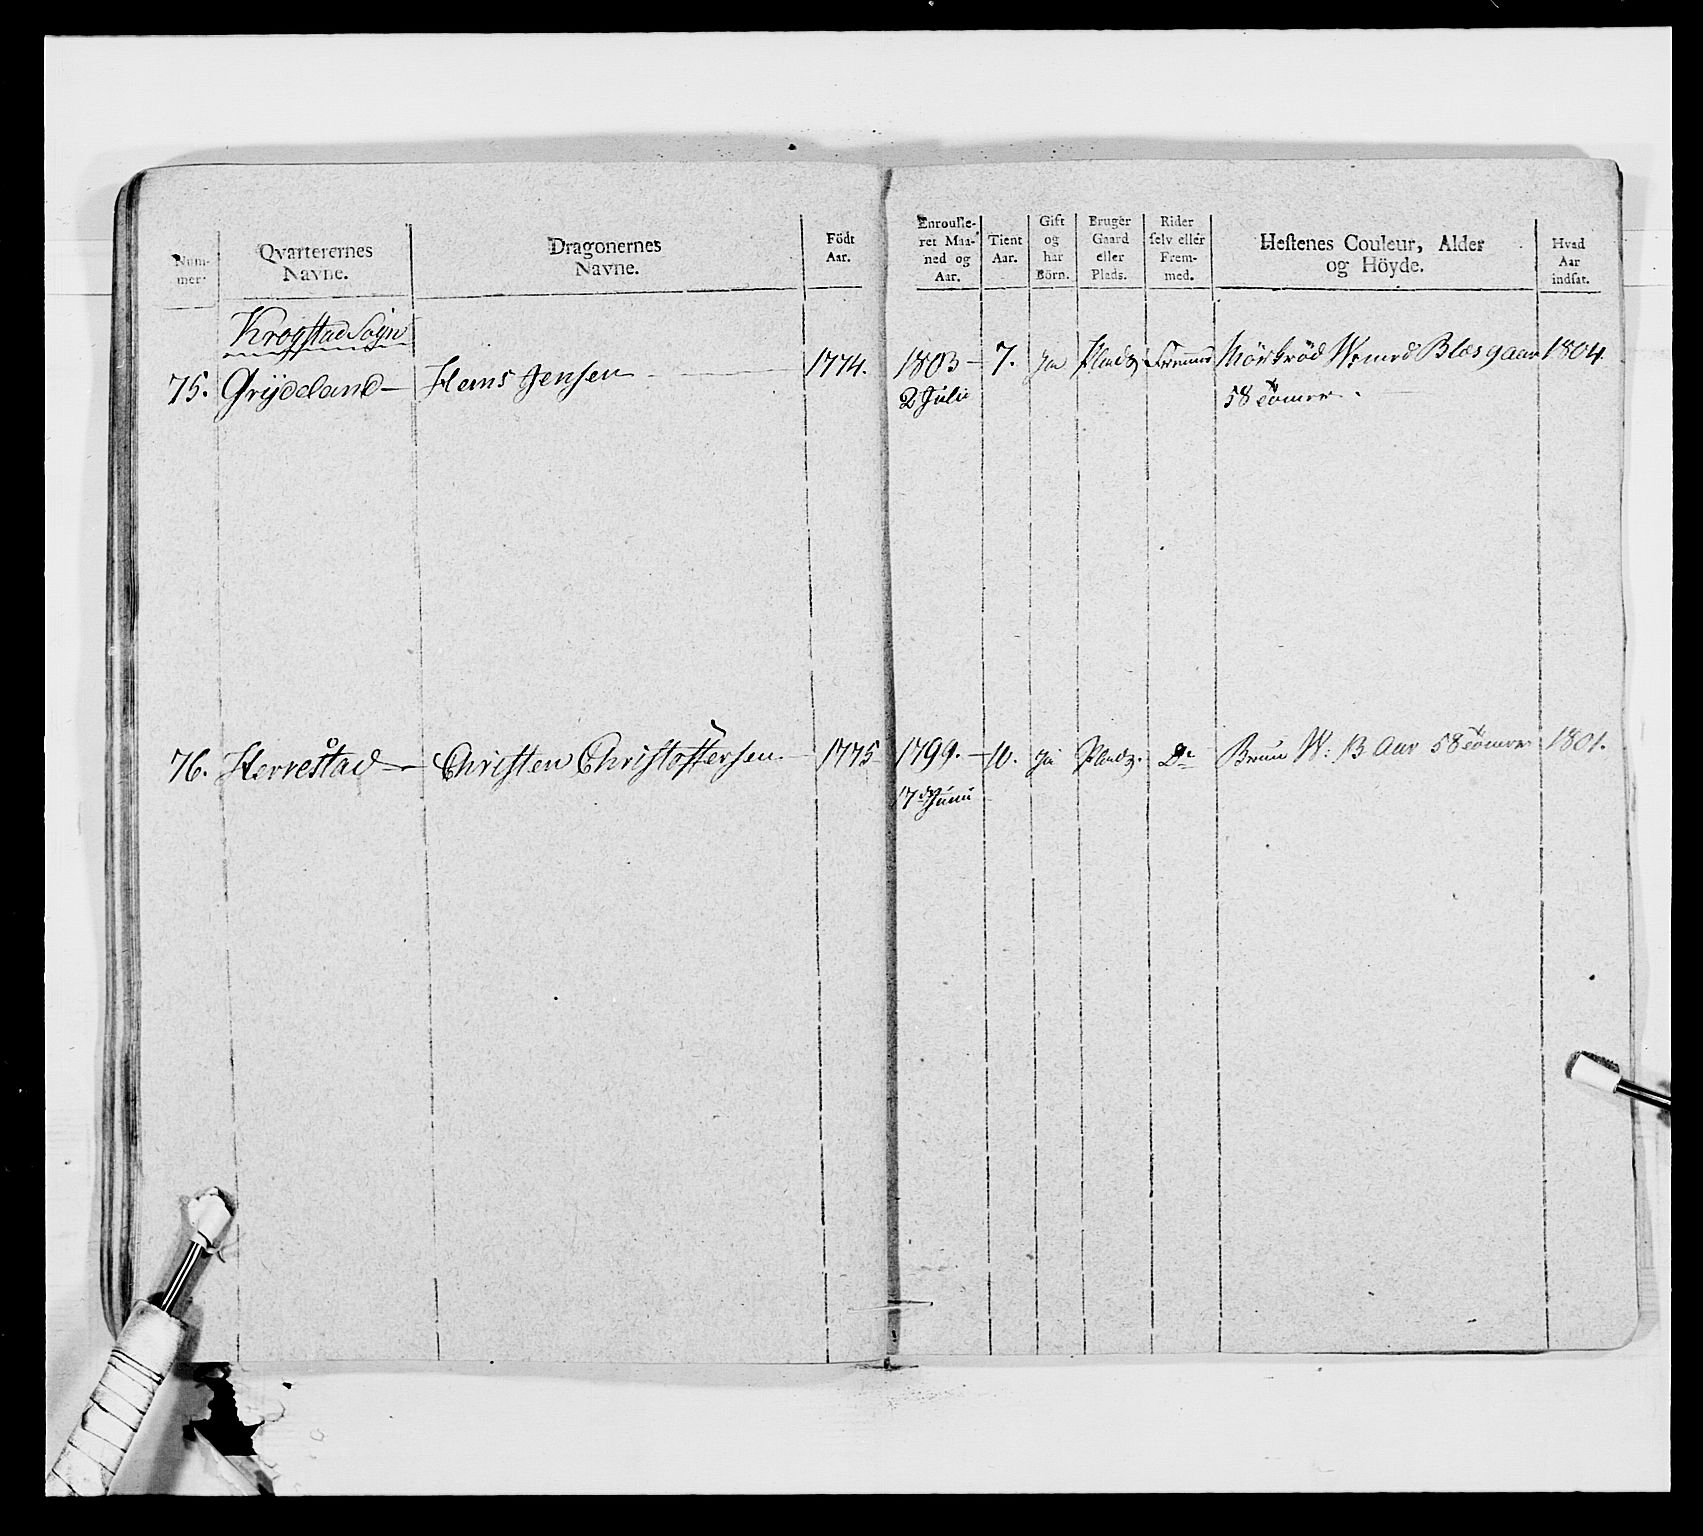 Num-
mer.
Qvarterernes
Navne.
Dragonernes
Navne.
Födt
Aar.
Enroulle-
ret Maa-
ned og
Aar.
Tient
Aar.
Gift
og
har
Börn.
Bruger
Gaard
eller
Plads.
Rider
selv eller
Frem-
med.
Hestenes Couleur, Alder
og Höyde.
Hvad
Aar
indsat.
Krogstad Sogn
75. Grydeland Hans Jensen 1774. 1803 7. Ja Plads Fremmed Mörkröd W med Blis 9 aar 1804.
2 Julii 58 Tommer
76. Herrestad Christen Christoffersen 1775 1799. 10. Ja Plads. Do Bruun W. 13 Aar 58 Tommer 1801.
17de Junii